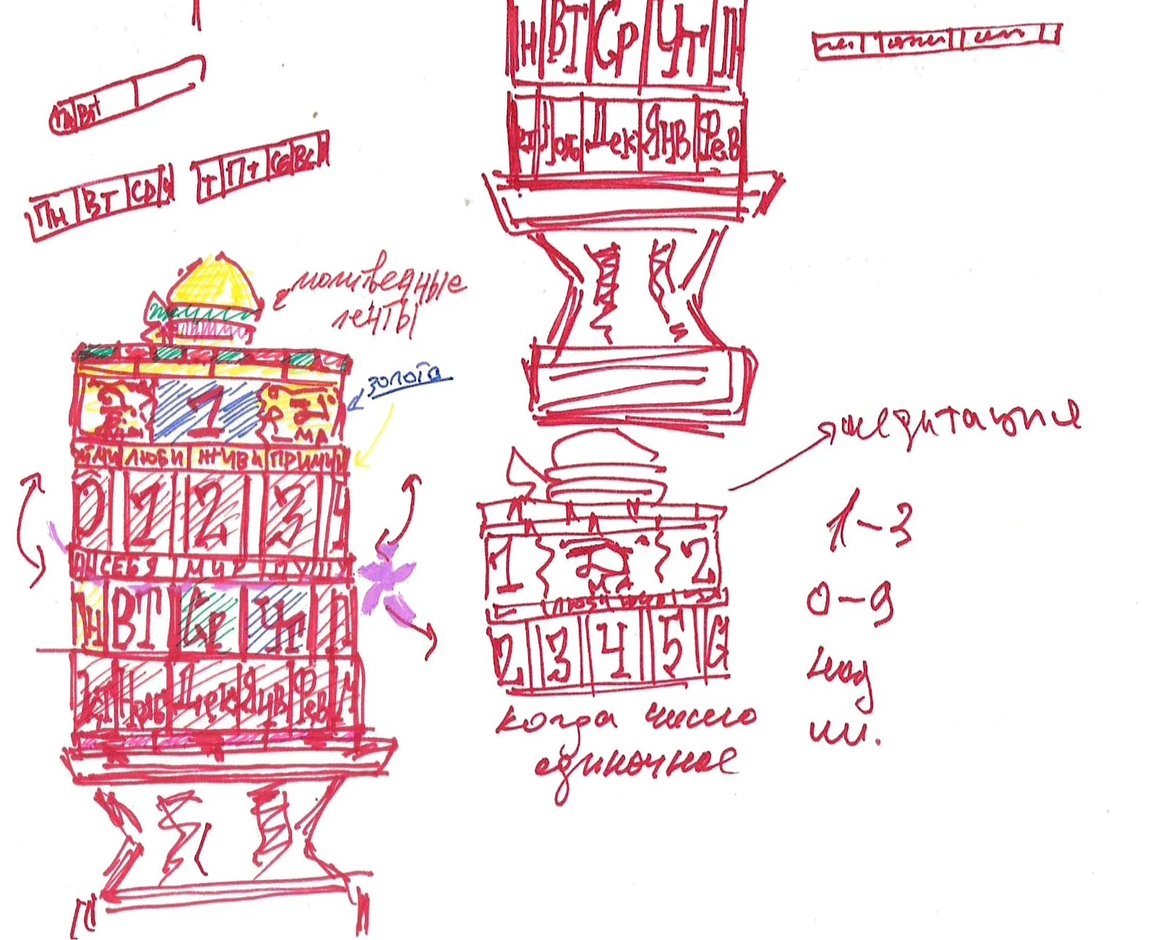 ВТ Ср Чт
Дек Янв Фев
Вт
Пн ВТ СР
т Пт Сб Вс
молитвенные
ленты
золото
1
МА
ЛЮБИ ЖИВИ ПРИМИ
0 1 2 3 4
СЕБЯ МИР
ВТ Ср Чт П
Дек Янв Фев М
медитация
1 2
МА
2 3 4 5 6
когда число
одиночное
1-3
0-9
нед